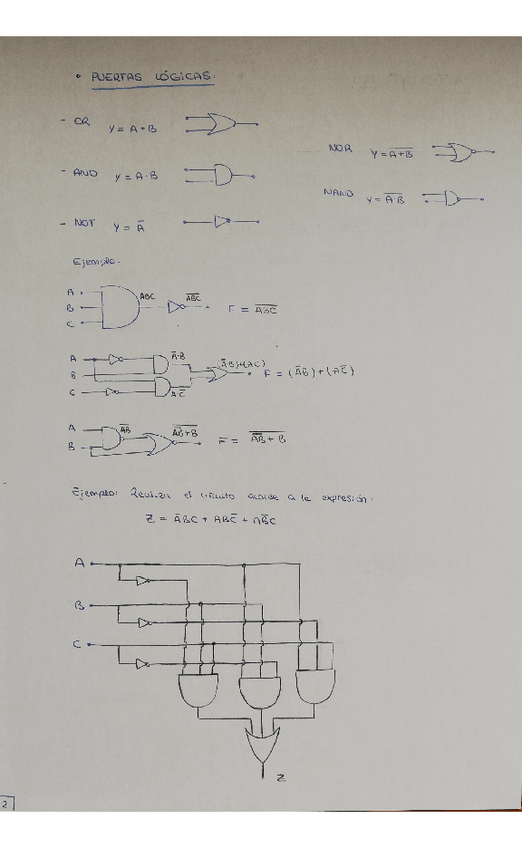 • PUERTAS LÓGICAS.
- OR Y = A + B
NOR Y = \overline{A+B}
- AND Y = A · B
NAND Y = \overline{A·B}
- NOT Y = Ā
Ejemplo.
A
B
C
ABC
\overline{ABC}
F = \overline{ABC}
A
B
C
Ā·B
A·C̄
F = (ĀB) + (AC̄)
A
B
\overline{AB}
\overline{\overline{AB}+B}
F = \overline{\overline{AB} + B}
Ejemplo: Realizar el circuito acorde a la expresión.
Z = ĀBC + ABC̄ + AB̄C
A
B
C
Z
2